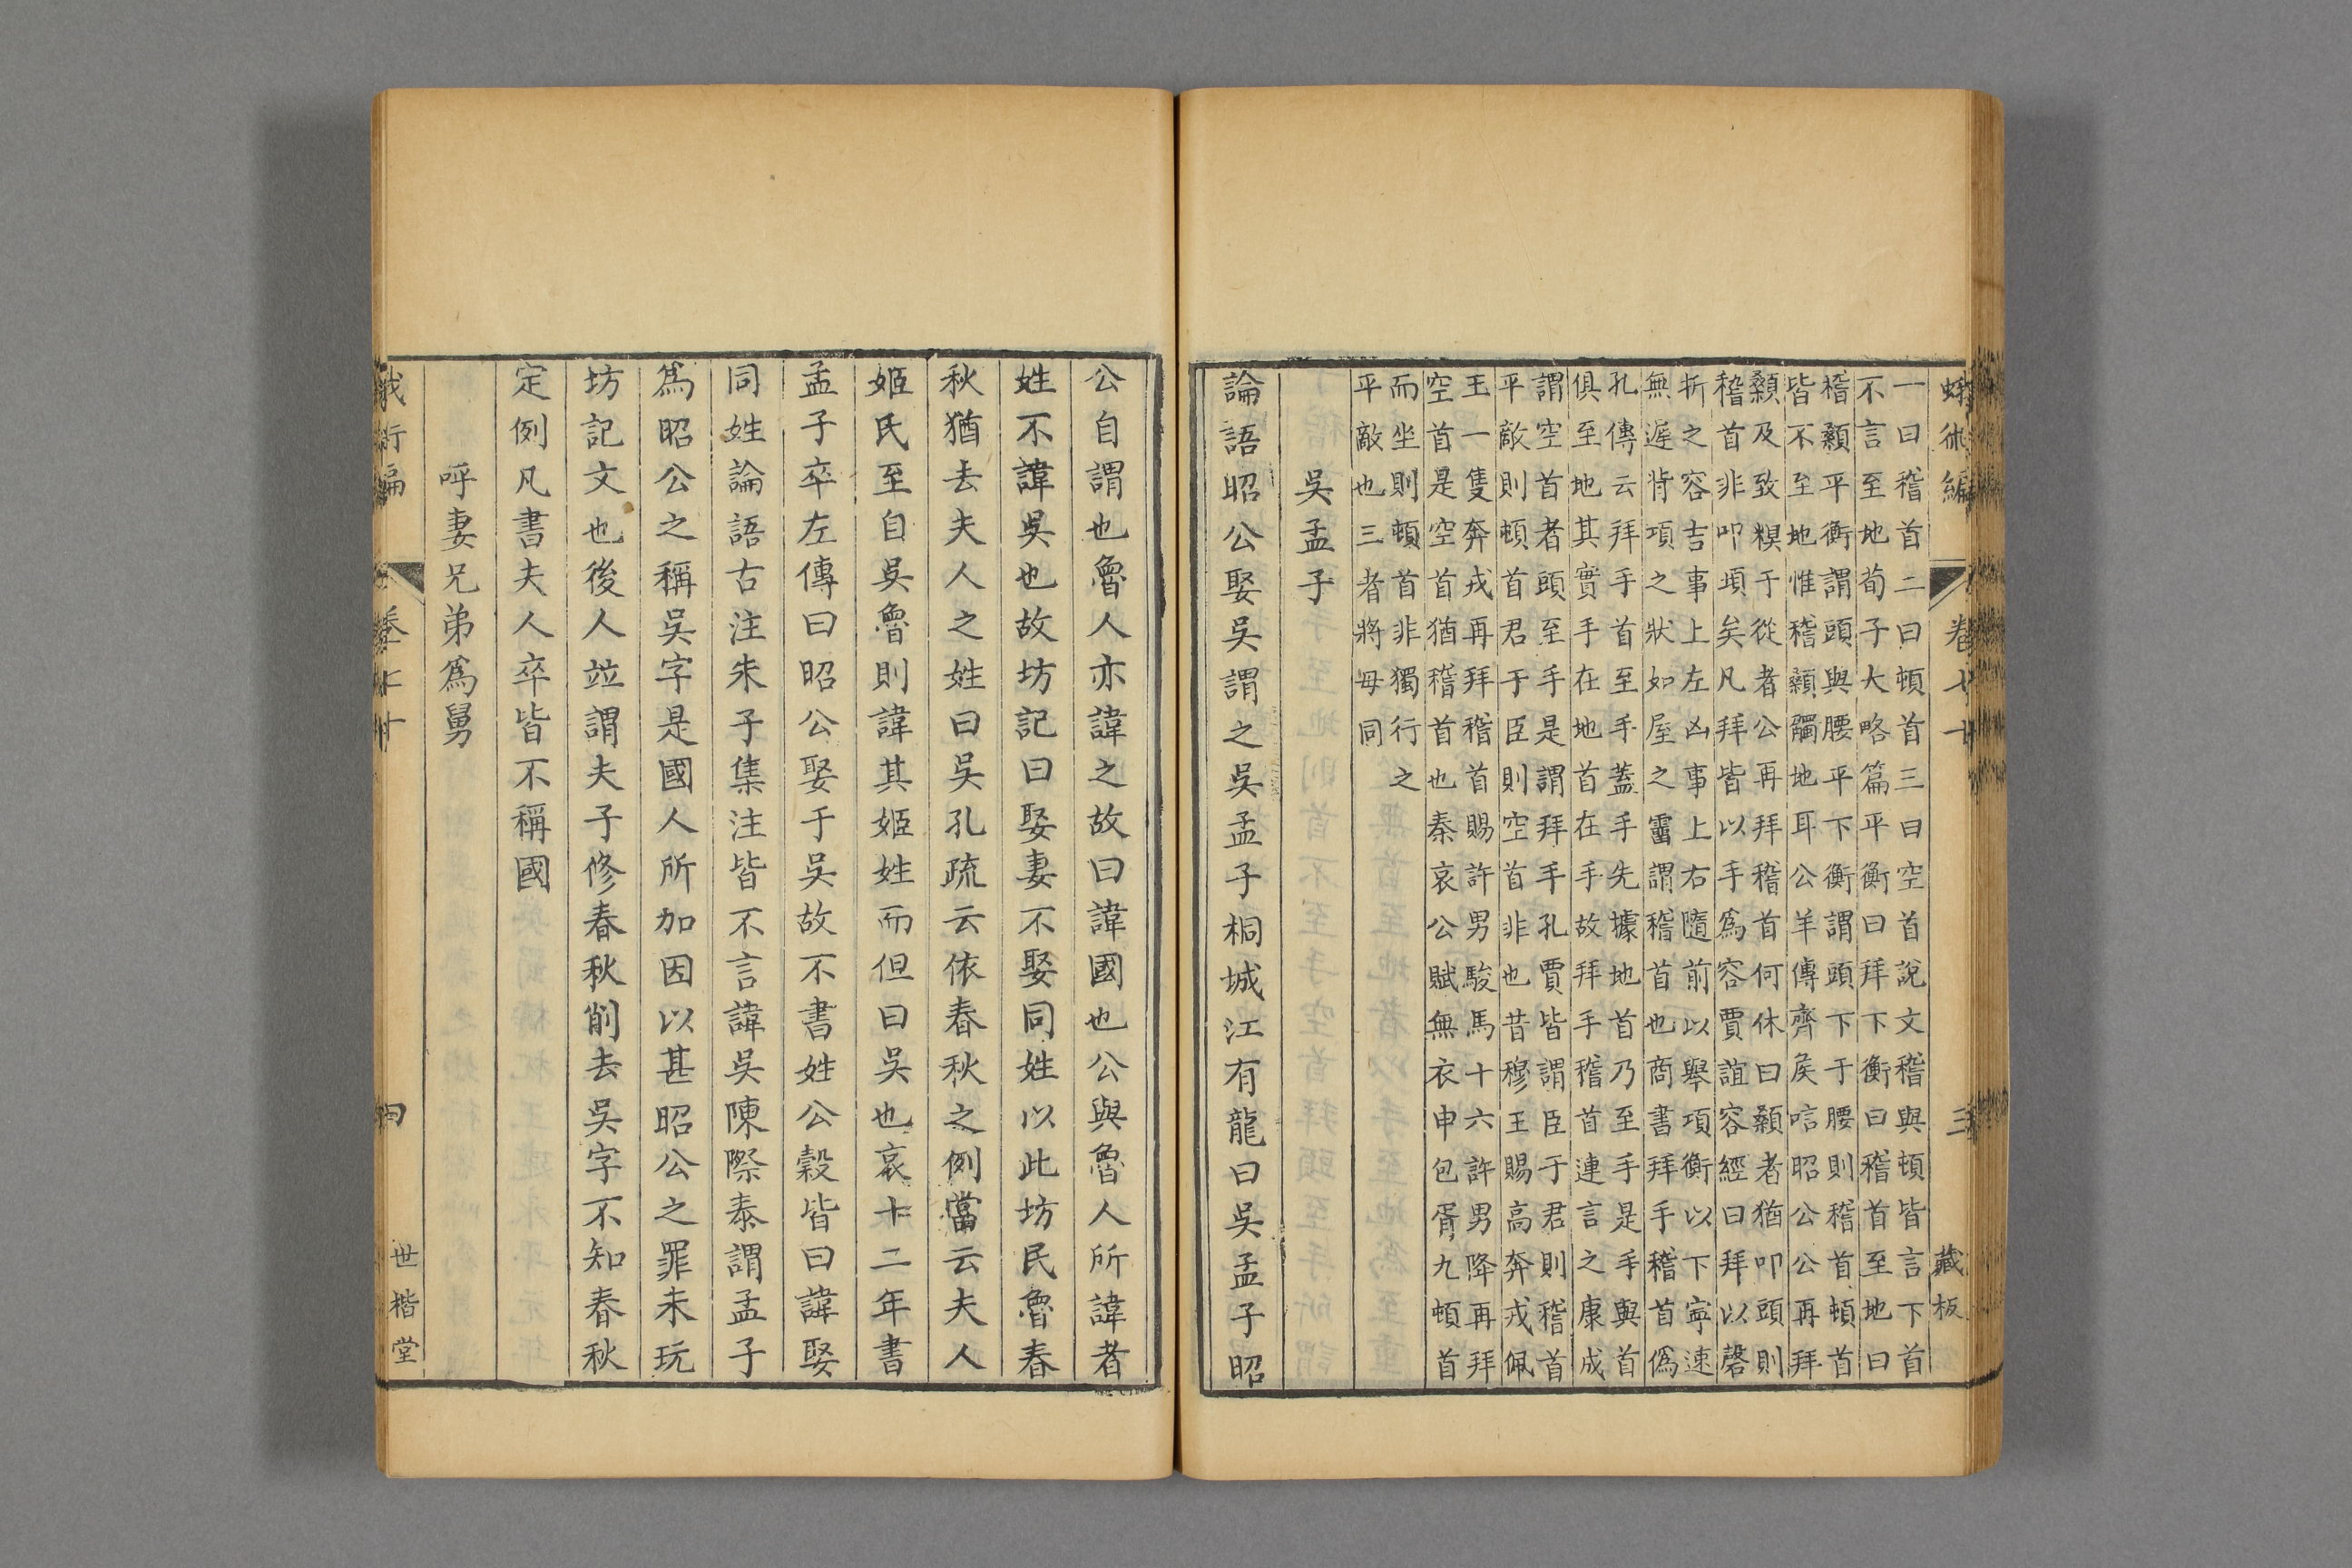 蛾術編 卷七十 三 藏板
一曰稽首二曰頓首三曰空首說文稽與頓皆言下首
不言至地荀子大略篇平衡曰拜下衡曰稽首至地曰
稽顙平衡謂頭與腰平下衡謂頭下于腰則稽首頓首
皆不至地惟稽顙觸地耳公羊傳齊侯唁昭公公再拜
顙及致糗于從者公再拜稽首何休曰顙者猶叩頭則
稽首非叩頊矣凡拜皆以手爲容賈誼容經曰拜以磬
折之容吉事上左凶事上右隨前以舉項衡以下寧速
無遲背項之狀如屋之霤謂稽首也商書拜手稽首僞
孔傳云拜手首至手蓋手先據地首乃至手是手與首
俱至地其實手在地首在手故拜手稽首連言之康成
謂空首者頭至手是謂拜手孔賈皆謂臣于君則稽首
平敵則頓首君于臣則空首非也昔穆王賜高奔戎佩
玉一隻奔戎再拜稽首賜許男駿馬十六許男降再拜
空首是空首猶稽首也秦哀公賦無衣申包胥九頓首
而坐則頓首非獨行之
平敵也三者將毋同
吳孟子
論語昭公娶吳謂之吳孟子桐城江有龍曰吳孟子昭
公自謂也魯人亦諱之故曰諱國也公與魯人所諱者
姓不諱吳也故坊記曰娶妻不娶同姓以此坊民魯春
秋猶去夫人之姓曰吳孔疏云依春秋之例當云夫人
姬氏至自吳魯則諱其姬姓而但曰吳也哀十二年書
孟子卒左傳曰昭公娶于吳故不書姓公穀皆曰諱娶
同姓論語古注朱子集注皆不言諱吳陳際泰謂孟子
爲昭公之稱吳字是國人所加因以甚昭公之罪未玩
坊記文也後人竝謂夫子修春秋削去吳字不知春秋
定例凡書夫人卒皆不稱國
呼妻兄弟爲舅
蛾術編 卷七十 四 世楷堂